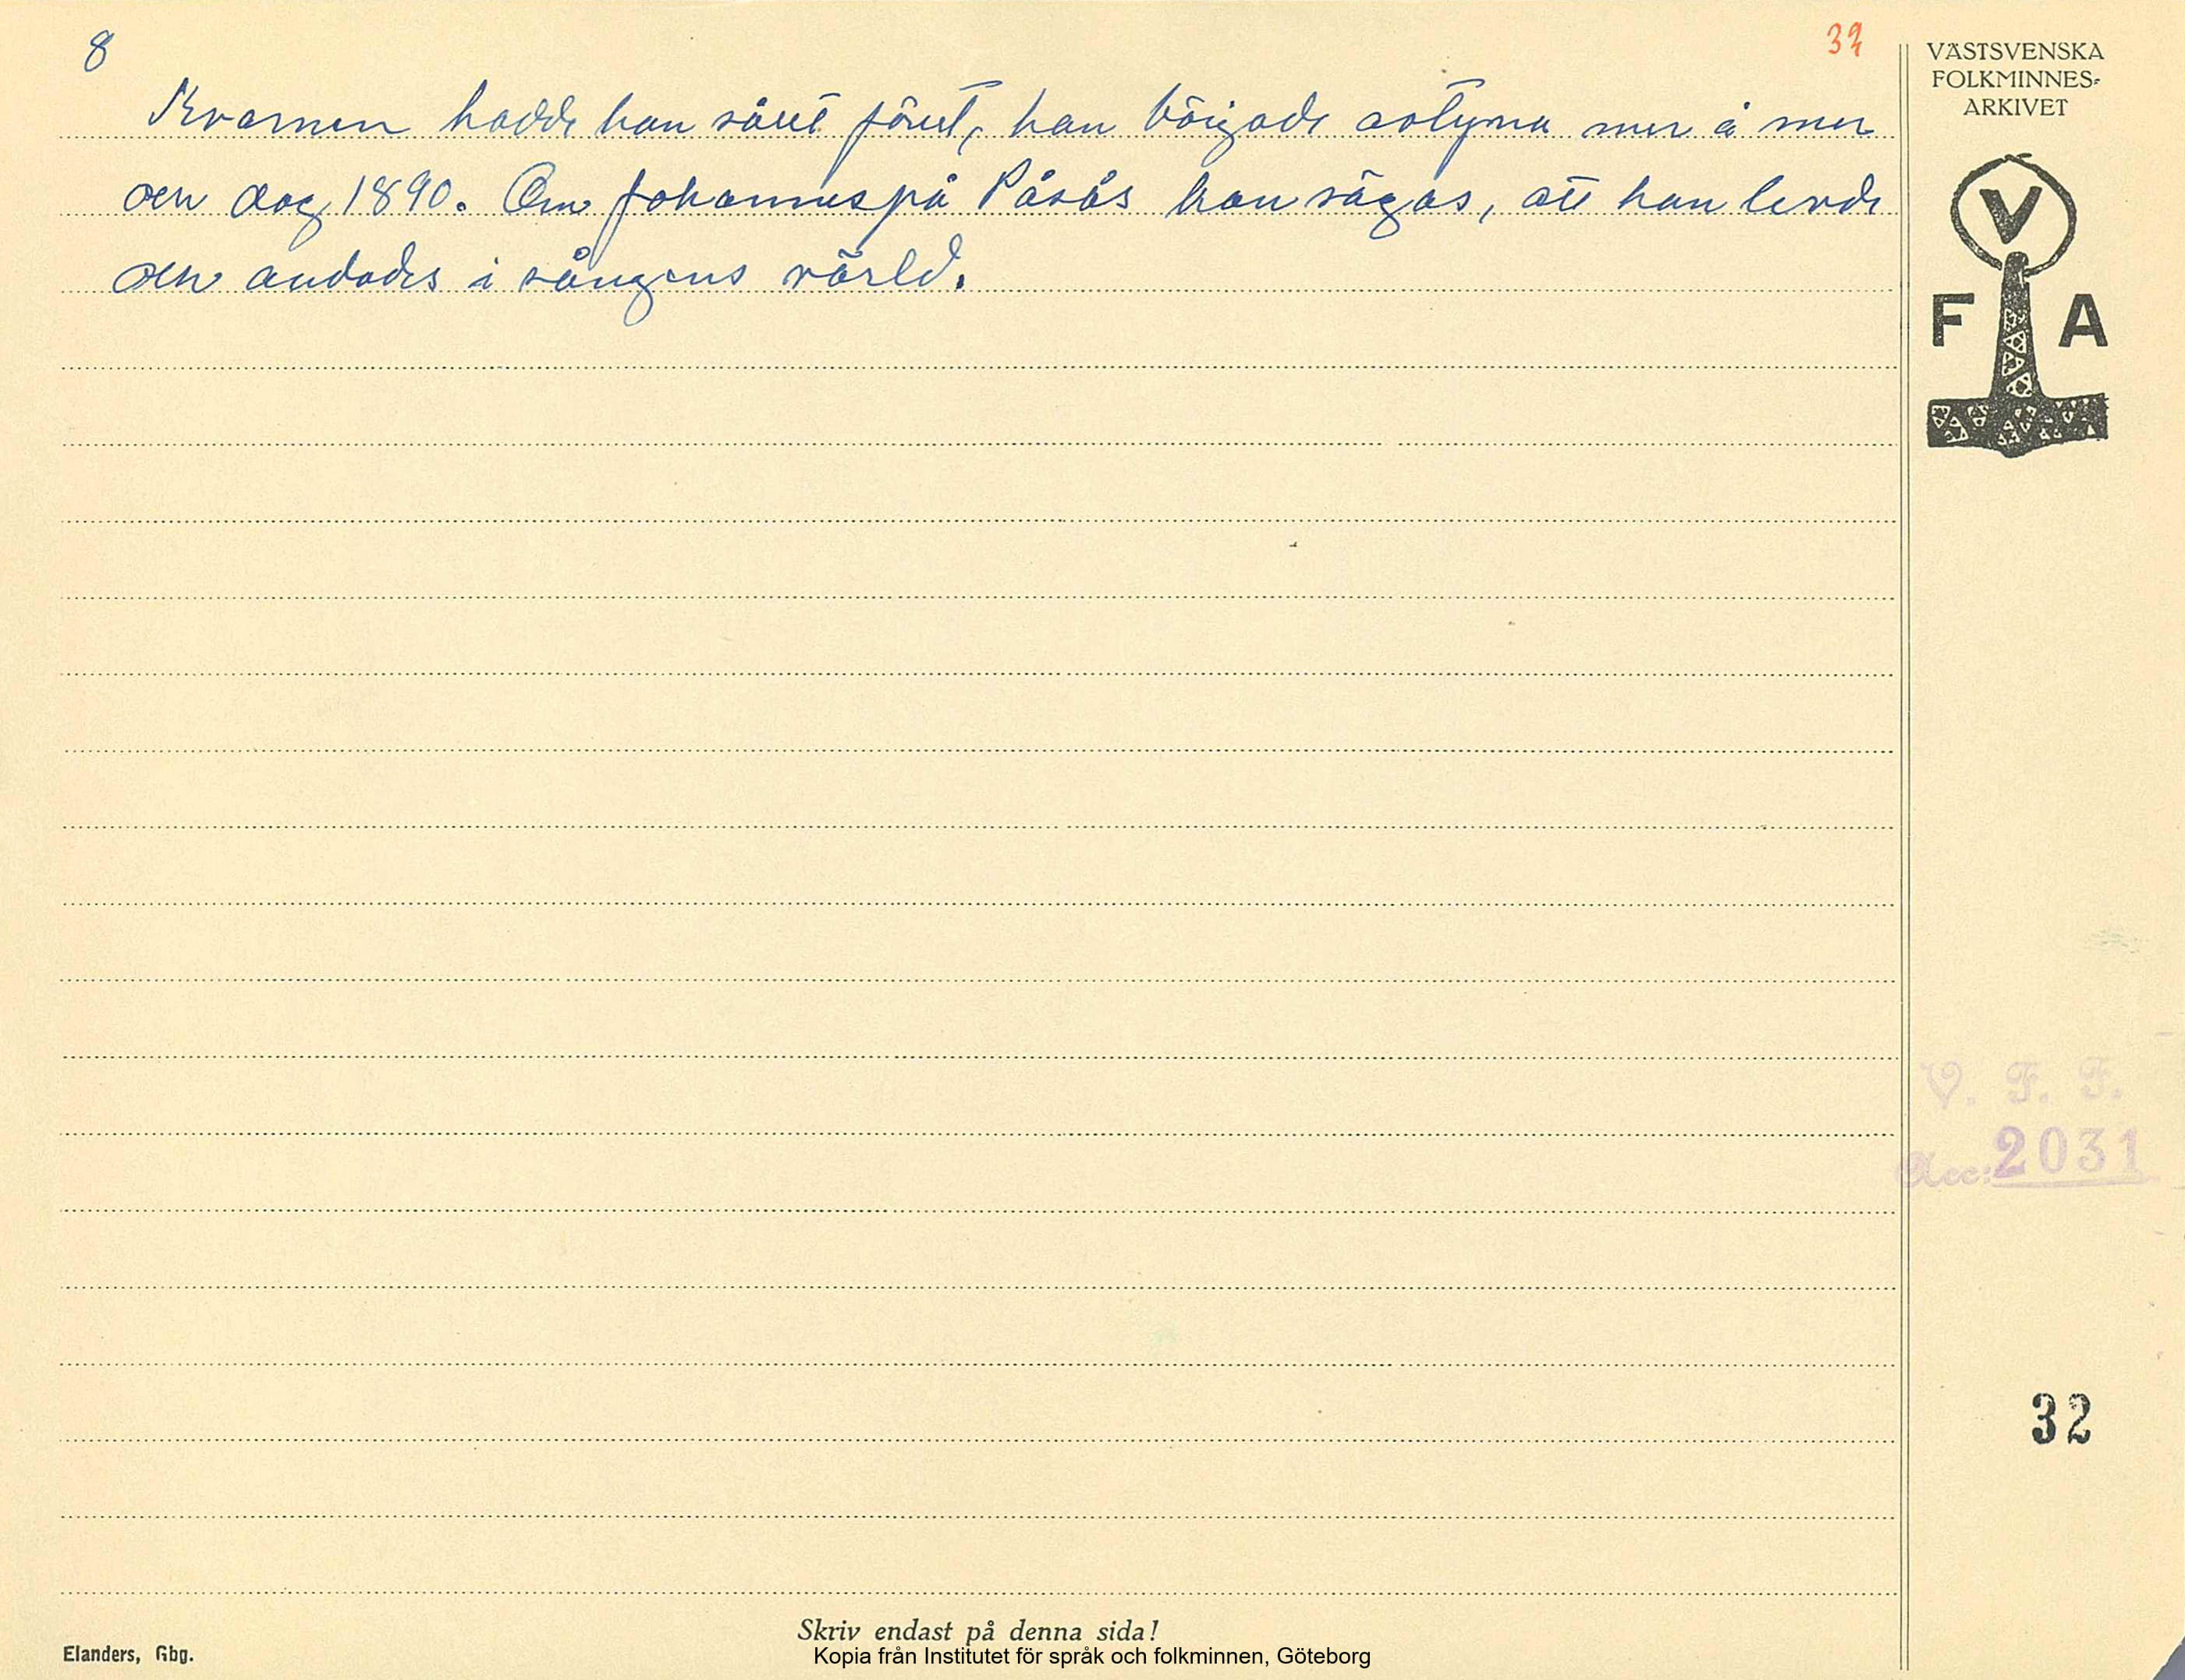 8
32
Kvarnen hadde han sålt förut, han började avtyna mer å mer
och dog 1890. Om Johannes på Påsås kan sägas, att han levde
och andades i sångens värld.
VÄSTSVENSKA
FOLKMINNES-
ARKIVET
V
F A
V. F. F.
Acc: 2031
32
Skriv endast på denna sida!
Elanders, Gbg.
Kopia från Institutet för språk och folkminnen, Göteborg